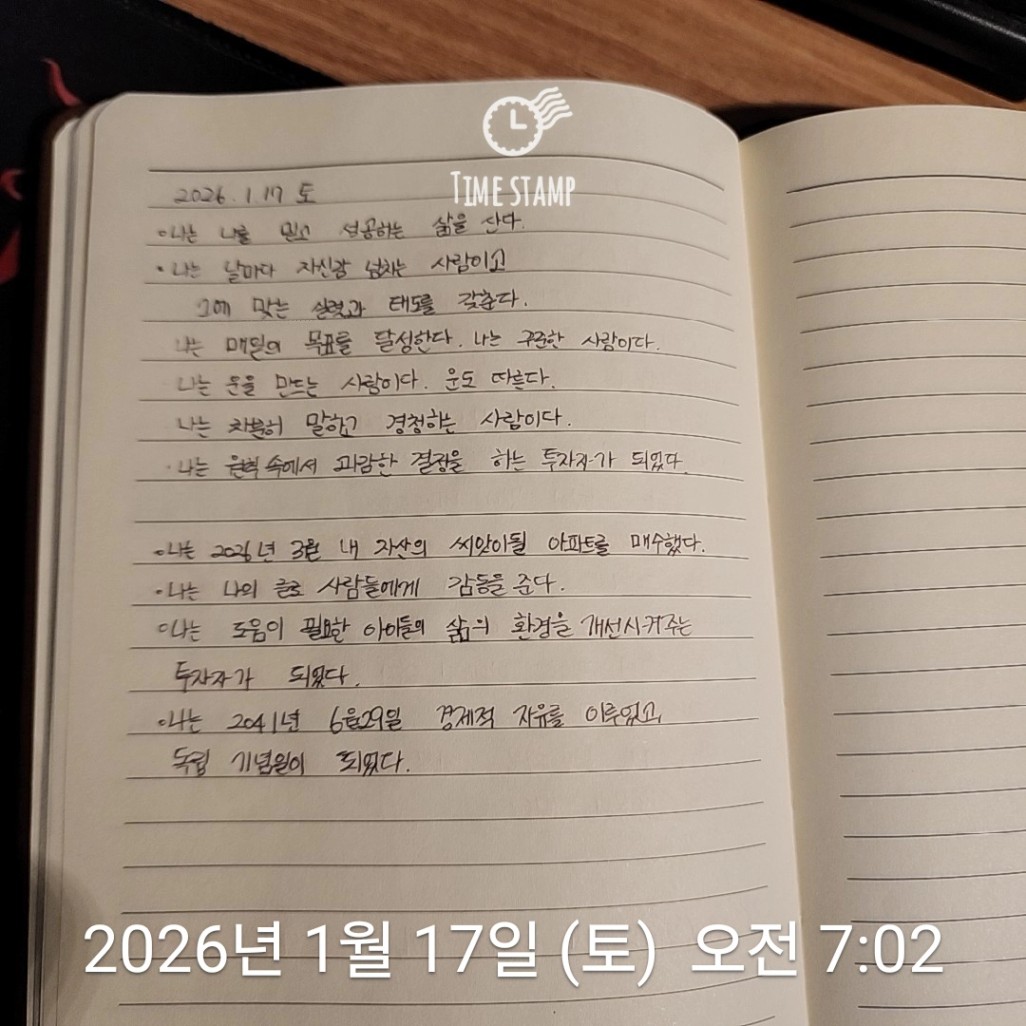 TIME STAMP
2026. 1. 17 토
•나는 나를 믿고 성공하는 삶을 산다.
•나는 날마다 자신감 넘치는 사람이고
그에 맞는 실력과 태도를 갖춘다.
나는 매일의 목표를 달성한다. 나는 꾸준한 사람이다.
나는 운을 만드는 사람이다. 운도 따른다.
나는 차분히 말하고 경청하는 사람이다.
•나는 원칙 속에서 과감한 결정을 하는 투자자가 되었다.
•나는 2026년 3월 내 자산의 씨앗이될 아파트를 매수했다.
•나는 나의 글로 사람들에게 감동을 준다.
•나는 도움이 필요한 아이들의 삶의 환경을 개선시켜주는
투자자가 되었다.
•나는 2041년 6월29일 경제적 자유를 이루었고,
독립 기념일이 되었다.
2026년 1월 17일 (토) 오전 7:02